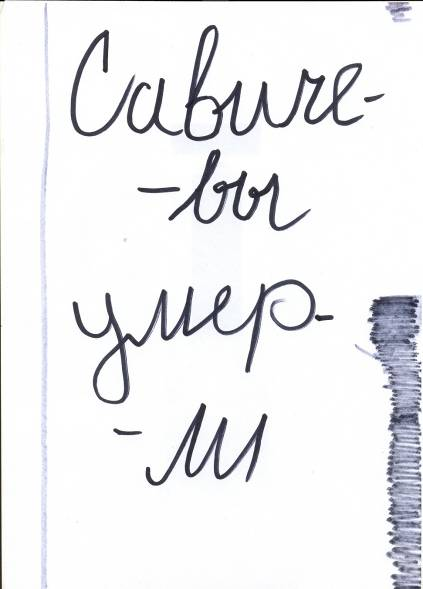 Савиче-
-вы
умер-
-ли